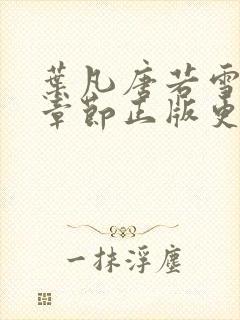 葉凡唐若雪
章節正版更
一抹浮塵